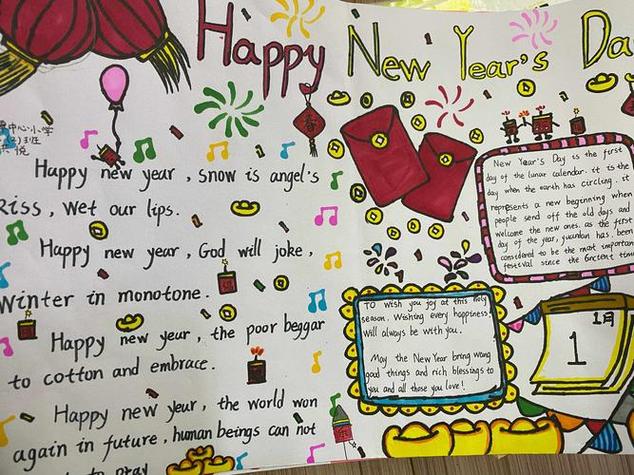 Happy New Year's Da
中心小学
班
Happy new year, snow is angel's
kiss, wet our lips.
Happy new year, God will joke,
winter in monotone.
Happy new year, the poor beggar
to cotton and embrace.
Happy new year, the world won
again in future, human beings can not
to pray
春
New Year's Day is the first
day of the lunar calendar. it is the
day when the earth has circling. it
represents a new beginning when
people send off the old days and
welcome the new ones. as the first
day of the year, yuandan has been
considered to be the most important
festival since the ancient time
To wish you joy at this holy
season. Wishing every happiness
Will always be with you.
May the New Year bring many
good things and rich blessings to
you and all those you love!
1月
1